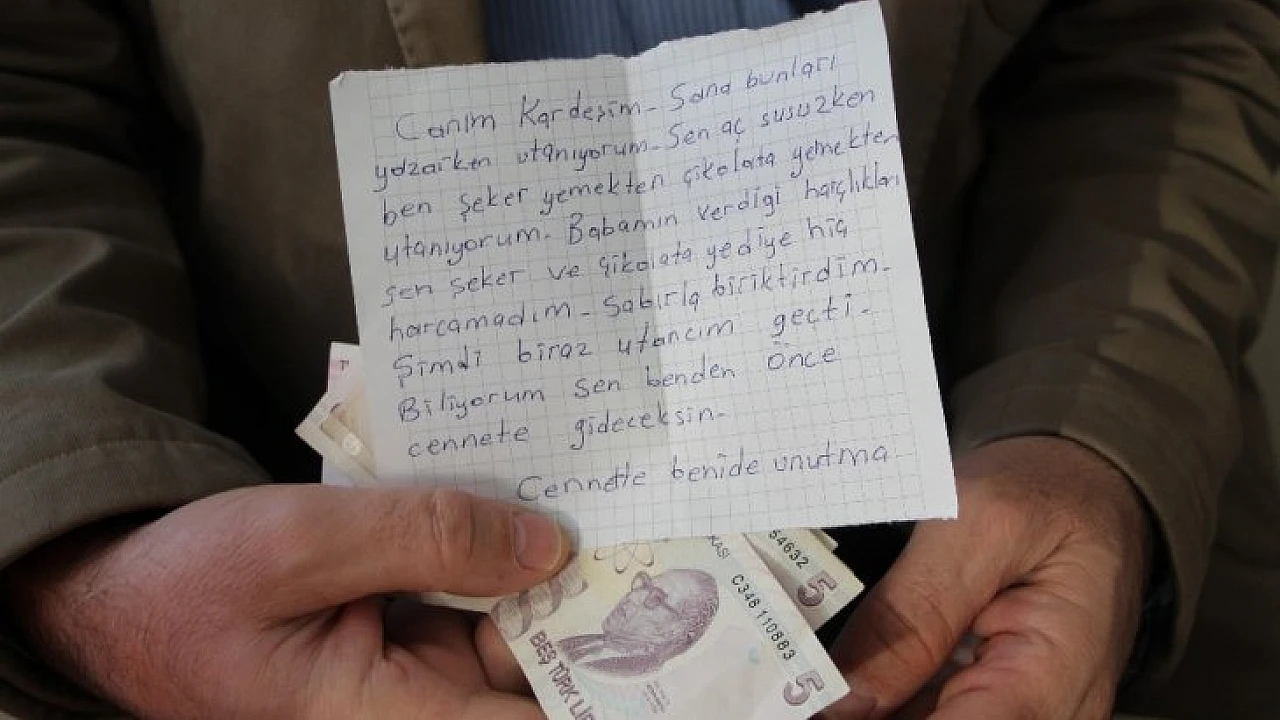 Canım Kardeşim. Sana bunları
yazarken utanıyorum. Sen aç susuzken
ben şeker yemekten çikolata yemekten
utanıyorum. Babamın verdiği harçlıkları
sen şeker ve çikolata yediye hiç
harcamadım. Sabırla biriktirdim.
Şimdi biraz utancım geçti.
Biliyorum sen benden önce
cennete gideceksin.
Cennette benide unutma
54632 5
C348110883 5
BEŞ TÜRK LİR